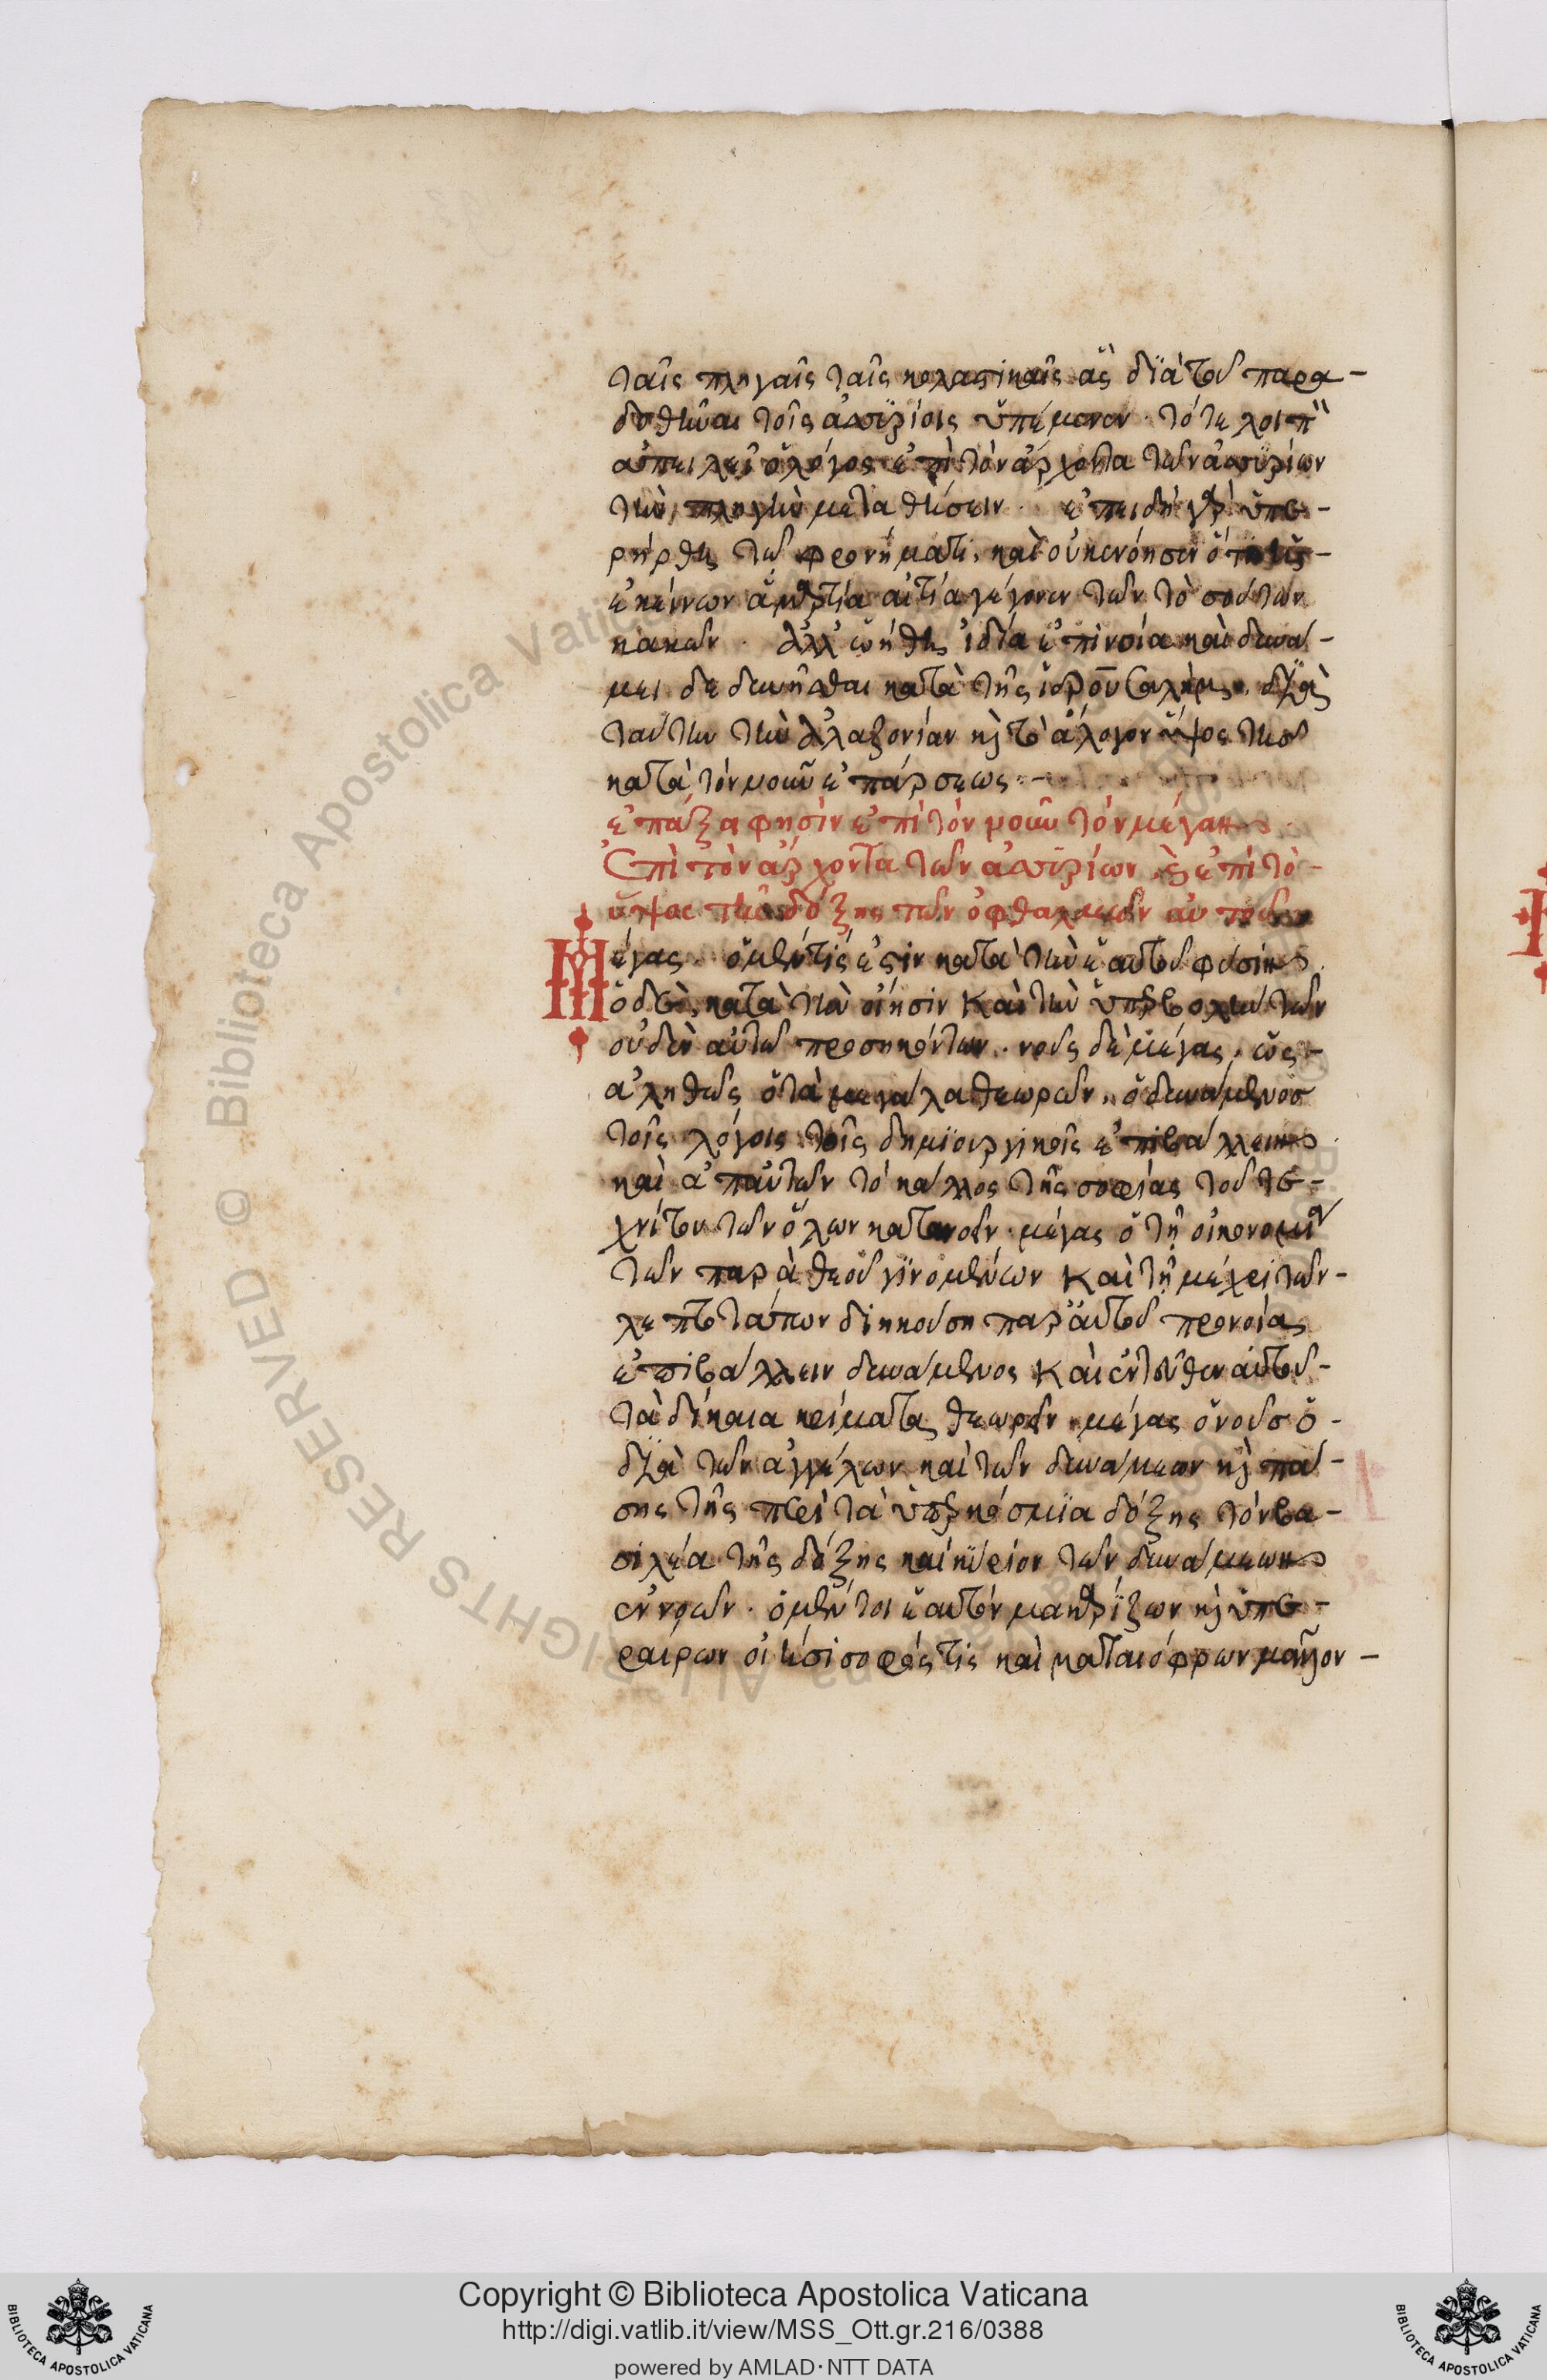 ταῖς πληγαῖς ταῖς κολαστικαῖς ἃς διὰ τοῦ παρα-
δοθῆναι τοῖς ἀσυρίοις ὑπέμενον. τότε λοιπὸν
ἀπειλεῖ ὁ λόγος ἐπὶ τὸν ἄρχοντα τῶν ἀσυρίων
τὴν πληγὴν μεταθήσειν. ἐπειδὴ γὰρ ὑπε-
ρήρθη τῷ φρονήματι, καὶ οὐκ ἐνόησεν ὅτι ἡ
ἐκείνων ἁμαρτία αἰτία γέγονεν τῶν τοσούτων
κακῶν. ἀλλ' ᾠήθη ἰδία ἐπινοία καὶ δυνά-
μει δεδυνῆσθαι κατὰ τῆς ἱερουσαλὴμ. διὰ
ταύτην τὴν ἀλαζονίαν καὶ τὸ ἄλογον ὕψος τῆς
κατὰ τὸν νοῦν ἐπάρσεως.
ἐπάξα φησὶν ἐπὶ τὸν νοῦν τὸν μέγαν
Ἐπὶ τὸν ἄρχοντα τῶν ἀσυρίων καὶ ἐπὶ τὸ
ὕψος τῆς δόξης τῶν ὀφθαλμῶν αὐτοῦ
Μέγας. ὁ μέν τίς ἐστιν κατὰ τὴν ἑαυτοῦ φύσιν
ὁ δὲ, κατὰ τὴν οἴησιν καὶ τὴν ὑπερβολὴν τῶν
οὐδὲν αὐτῶ προσηκόντων. νοῦς δὲ μέγας. ὡς
ἀληθῶς ὁ τὰ μεγάλα θεωρῶν. ὁ δυνάμενος
τοῖς λόγοις τοῖς δημιουργικοῖς ἐπιβάλλειν
καὶ ἀπ' αὐτῶν τὸ κάλλος τῆς σοφίας τοῦ τε-
χνίτου τῶν ὅλων κατανοεῖν. μέγας ὁ τῇ οἰκονομία
τῶν παρὰ θεοῦ γινομένων καὶ τῇ μέχρι τῶν
λεπτοτάτων διηκούση παρ' αὐτοῦ προνοίας
ἐπιβάλλειν δυνάμενος καὶ ἐντεῦθεν αὐτοῦ
τὰ δίκαια κρίματα θεωρεῖν. μέγας ὁ νοῦς ὁ
διὰ τῶν ἀγγέλων καὶ τῶν δυνάμεων καὶ πά-
σης τῆς περὶ τὰ ὑπερκόσμια δόξης τὸν βα-
σιλέα τῆς δόξης καὶ κύριον τῶν δυνάμεων
ἐννοῶν. ὁ μέντοι ἑαυτὸν μακαρίζων καὶ ὑπε-
ραίρων οἰήσι σοφός τις καὶ ματαιόφρων μᾶλλον
Copyright © Biblioteca Apostolica Vaticana
http://digi.vatlib.it/view/MSS_Ott.gr.216/0388
powered by AMLAD·NTT DATA